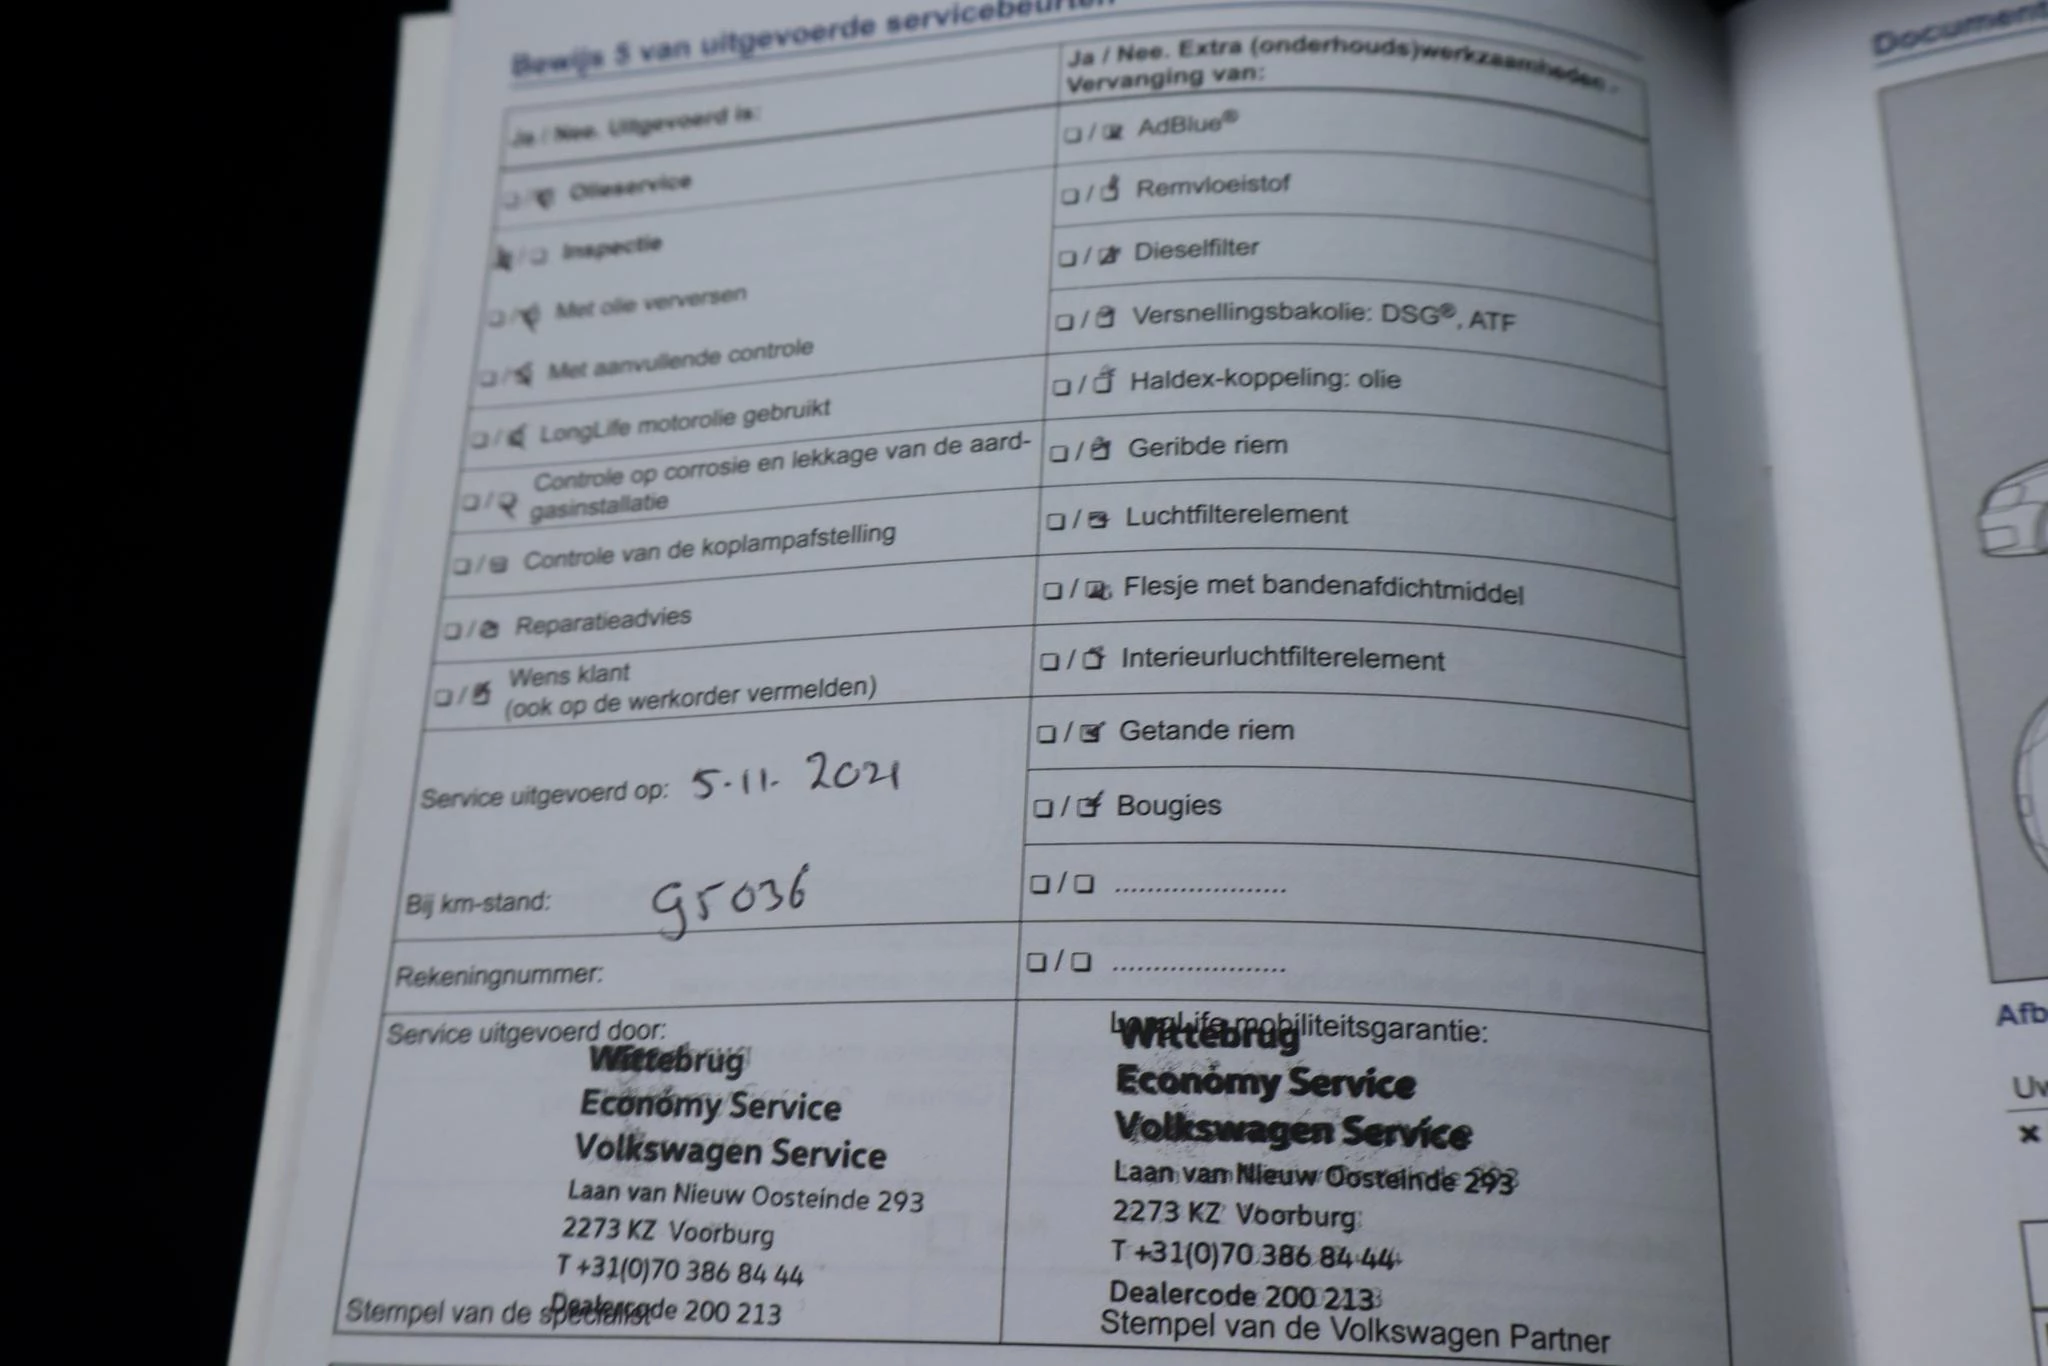 Bewijs 5 van uitgevoerde servicebeurten
Ja / Nee. Uitgevoerd is:
Olieservice
Inspectie
Met olie verversen
Met aanvullende controle
LongLife motorolie gebruikt
Controle op corrosie en lekkage van de aard-
gasinstallatie
Controle van de koplampafstelling
Reparatieadvies
Wens klant
(ook op de werkorder vermelden)
Service uitgevoerd op: 5-11- 2021
Bij km-stand: 95036
Rekeningnummer:
Service uitgevoerd door:
Wittebrug
Economy Service
Volkswagen Service
Laan van Nieuw Oosteinde 293
2273 KZ Voorburg
T +31(0)70 386 84 44
Dealercode 200 213
Stempel van de specialist
Ja / Nee. Extra (onderhouds)werkzaamheden -
Vervanging van:
/ AdBlue®
/ Remvloeistof
/ Dieselfilter
/ Versnellingsbakolie: DSG®, ATF
/ Haldex-koppeling: olie
/ Geribde riem
/ Luchtfilterelement
/ Flesje met bandenafdichtmiddel
/ Interieurluchtfilterelement
/ Getande riem
/ Bougies
/ .....................
/ .....................
LongLife mobiliteitsgarantie:
Wittebrug
Economy Service
Volkswagen Service
Laan van Nieuw Oosteinde 293
2273 KZ Voorburg
T +31(0)70 386 84 44
Dealercode 200 213
Stempel van de Volkswagen Partner
Document
Afb
Uw